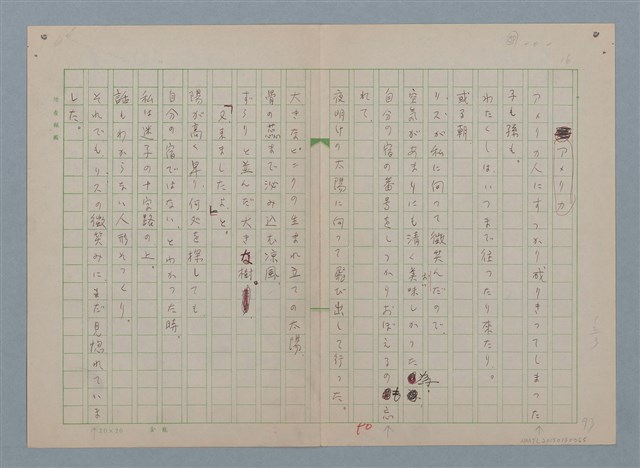 アメリカ
アメリカ人にすつかり成りきつてしまつた
子も孫も。
わたくしはいつまで往つたり来たり。
或る朝
リスが私に向つて微笑んだので、
空気があまりにも清く美味しかつた為、
自分の宿の番号をしつかりおぼえるのも忘
れて、
夜明けの太陽に向つて飛び出して行つた。
大きなビンクの生まれ立ての太陽、
骨の蕊まで沁み込む涼風、
ずらりと並んだ大きな樹。
「又来ましたよ」と。
陽が高く昇り、何処を探しても
自分の宿ではない、とわかつた時、
私は迷子の十字路の上。
話もわからない人形そつくり。
それでもリスの微笑みにまだ見惚れている
した。